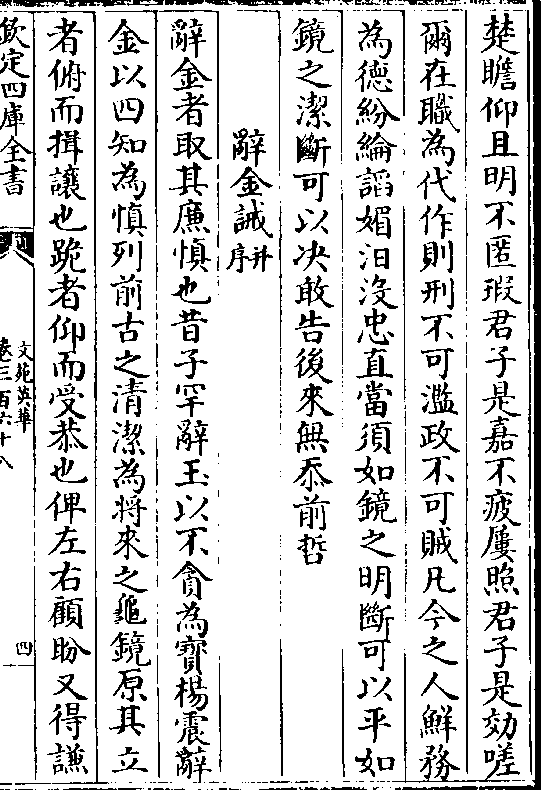 楚瞻仰且明不匿瑕君子是嘉不疲屢照君子是効嗟
爾在職為代作則刑不可濫政不可賊凡今之人鮮務
為德紛綸謟媚汩沒忠直當須如鏡之明斷可以平如
鏡之潔斷可以决敢告後來無忝前哲
辭金誡并序
辭金者取其廉慎也昔子罕辭玉以不貪為寳楊震辭
金以四知為慎列前古之清潔為將來之龜鏡原其立
者俯而揖讓也跪者仰而受恭也俾左右顧盼又得謙
欽定四庫全書
文苑英華
卷三百六十八
四